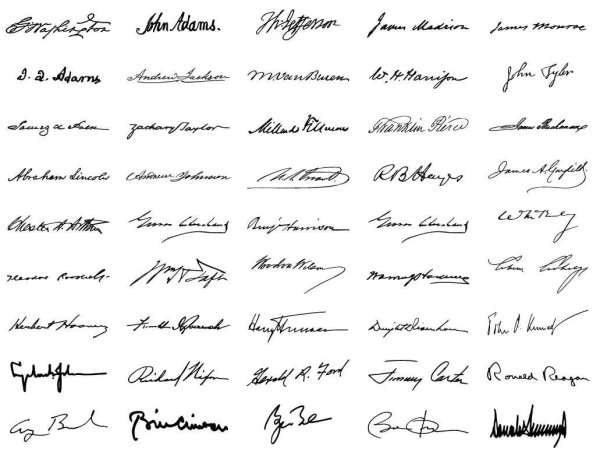 G Washington John Adams. Th. Jefferson James Madison James Monroe
J. Q. Adams Andrew Jackson M. Van Buren W. H. Harrison John Tyler
James K Polk Zachary Taylor Millard Fillmore Franklin Pierce James Buchanan
Abraham Lincoln Andrew Johnson U. S. Grant R B Hayes James A. Garfield
Chester A. Arthur Grover Cleveland Benj Harrison Grover Cleveland
Theodore Roosevelt Wm H Taft Woodrow Wilson Warren G Harding Calvin Coolidge
Herbert Hoover Franklin D Roosevelt Harry Truman Dwight D Eisenhower John F. Kennedy
Lyndon B Johnson Richard Nixon Gerald R. Ford Jimmy Carter Ronald Reagan
G Bush Bill Clinton Donald Trump